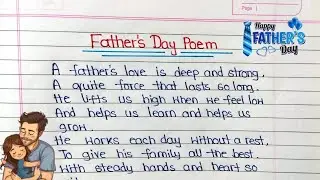 Page:
Happy
FATHER'S
Day
Father's Day Poem
A father's love is deep and strong.
A quite force that lasts so long.
He lifts us high when he feel low
And helps us learn and helps us
grow.
He works each day without a rest,
To give his family all the best.
With steady hands and heart so